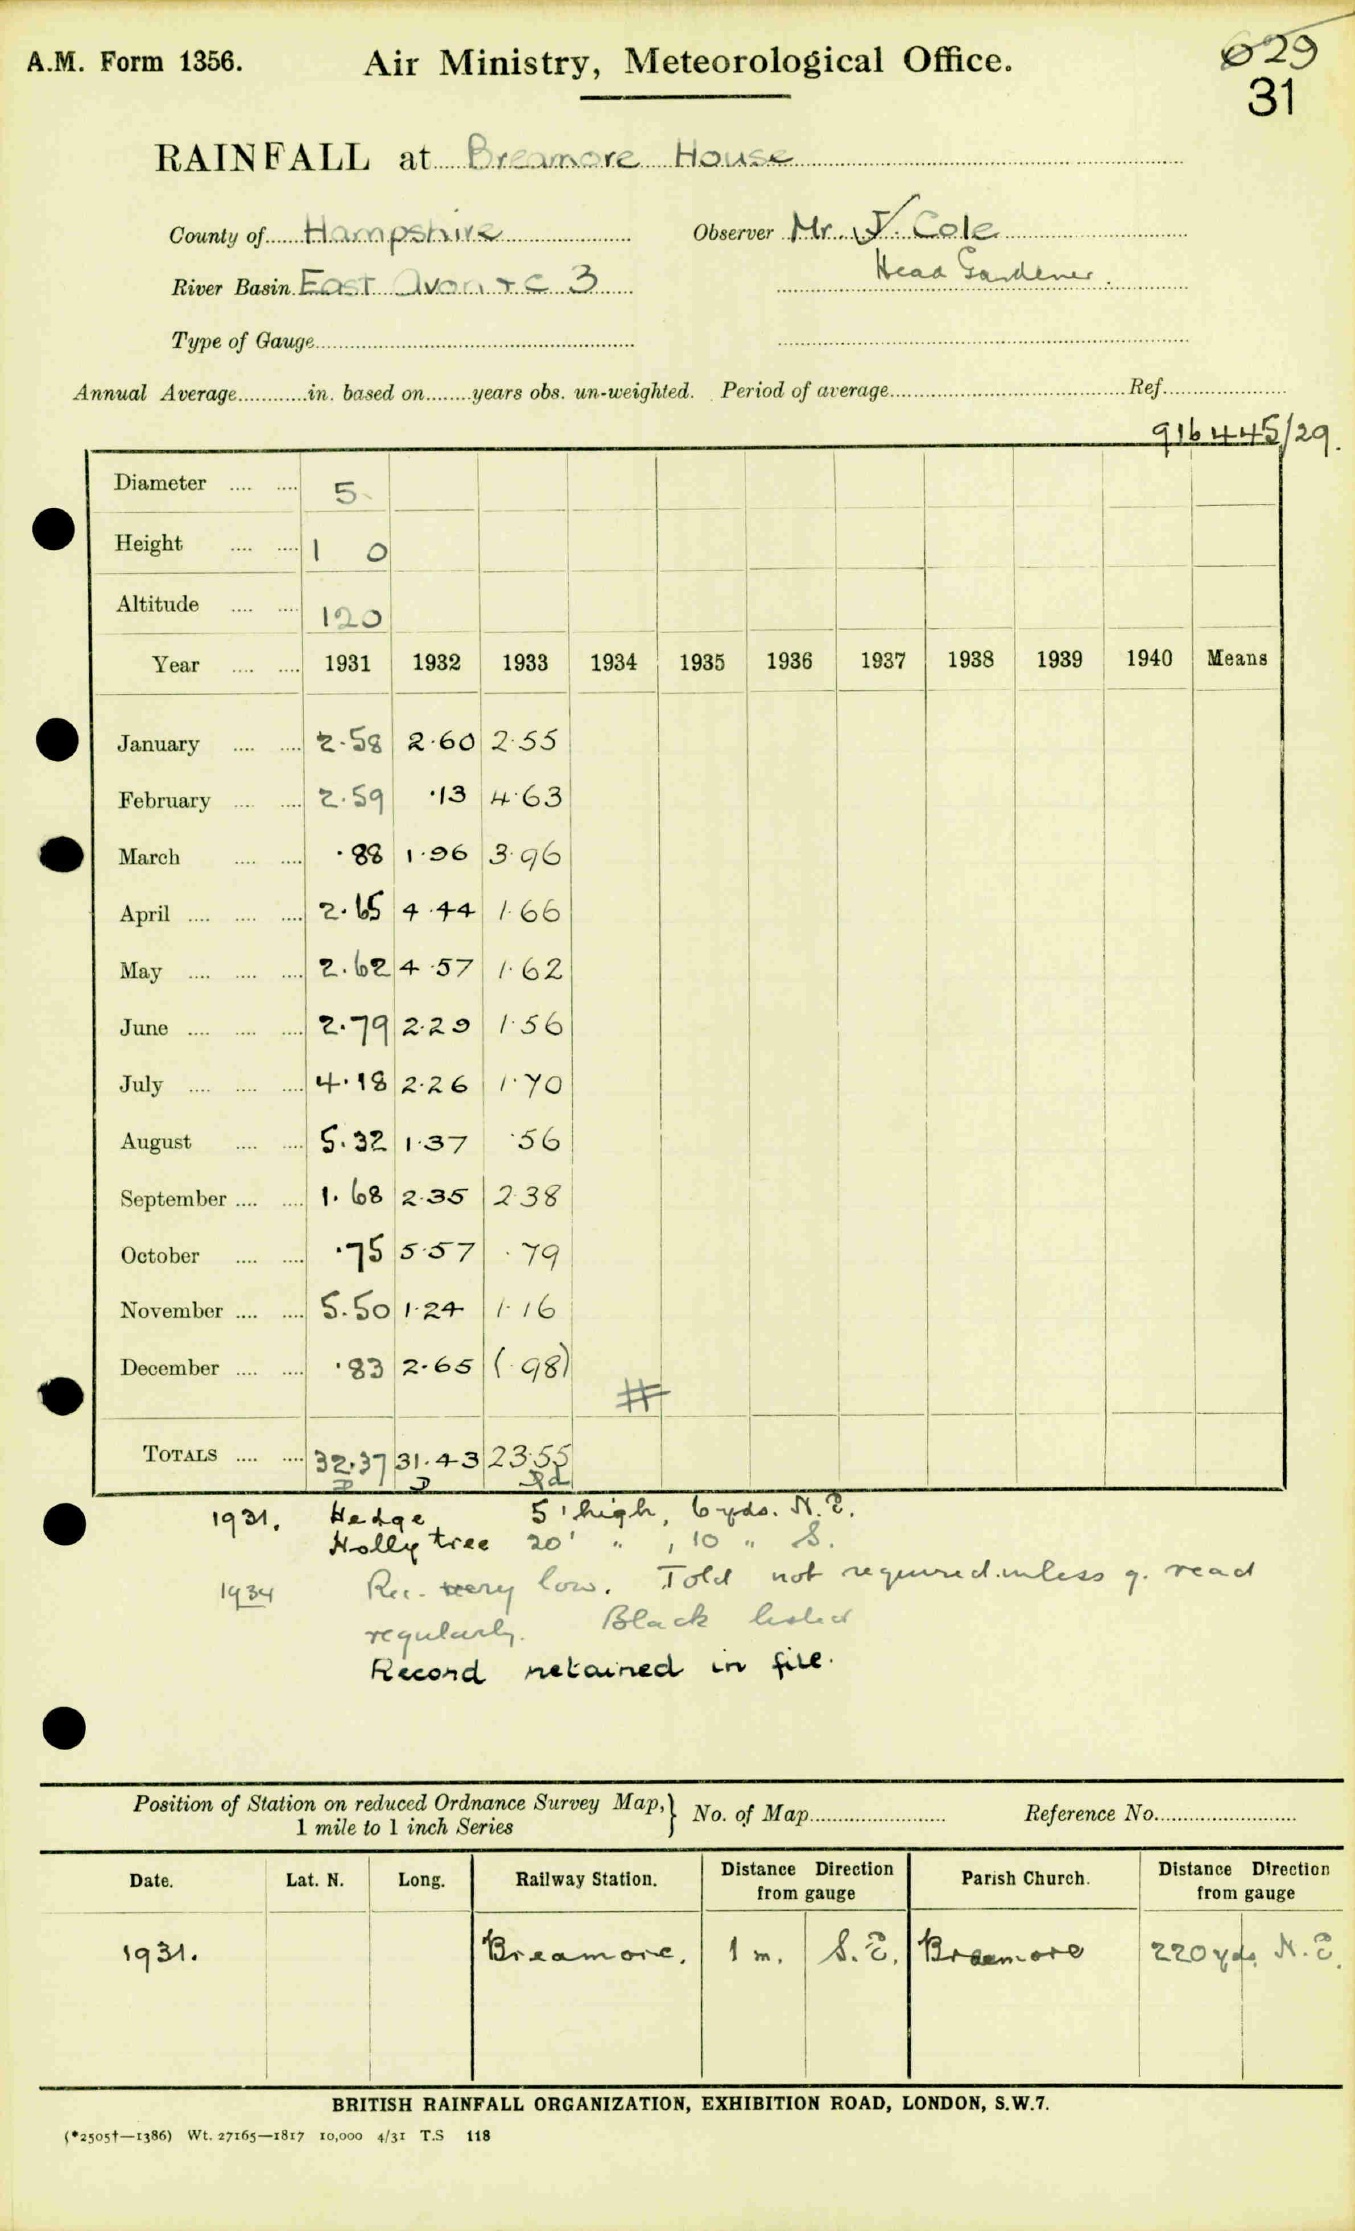 A.M. Form 1356. Air Ministry, Meteorological Office. 629
31
RAINFALL at Breamore House
County of Hampshire Observer Mr. J. Cole
River Basin East Avon + C 3 Head Gardener.
Type of Gauge
Annual Average in. based on years obs. un-weighted. Period of average Ref.
916445/29.
Diameter 5
Height 1 0
Altitude 120
Year 1931 1932 1933 1934 1935 1936 1937 1938 1939 1940 Means
January 2.58 2.60 2.55
February 2.59 .13 4.63
March .88 1.96 3.96
April 2.65 4.44 1.66
May 2.62 4.57 1.62
June 2.79 2.29 1.56
July 4.18 2.26 1.70
August 5.32 1.37 .56
September 1.68 2.35 2.38
October .75 5.57 .79
November 5.50 1.24 1.16
December .83 2.65 (.98)
#
TOTALS 32.37 31.43 23.55
1931. Hedge 5' high, 6 yds. N.E.
Holly tree 20' " , 10 " S.
1934 Rec. very low. Told not required unless g. read
regularly. Black listed
Record retained in file.
Position of Station on reduced Ordnance Survey Map, } No. of Map Reference No.
1 mile to 1 inch Series
Date. Lat. N. Long. Railway Station. Distance Direction from gauge Parish Church. Distance Direction from gauge
1931. Breamore. 1 m. S.E. Breamore 220 yds. N.E.
BRITISH RAINFALL ORGANIZATION, EXHIBITION ROAD, LONDON, S.W.7.
(*2505†—1386) Wt. 27165—1817 10,000 4/31 T.S 118